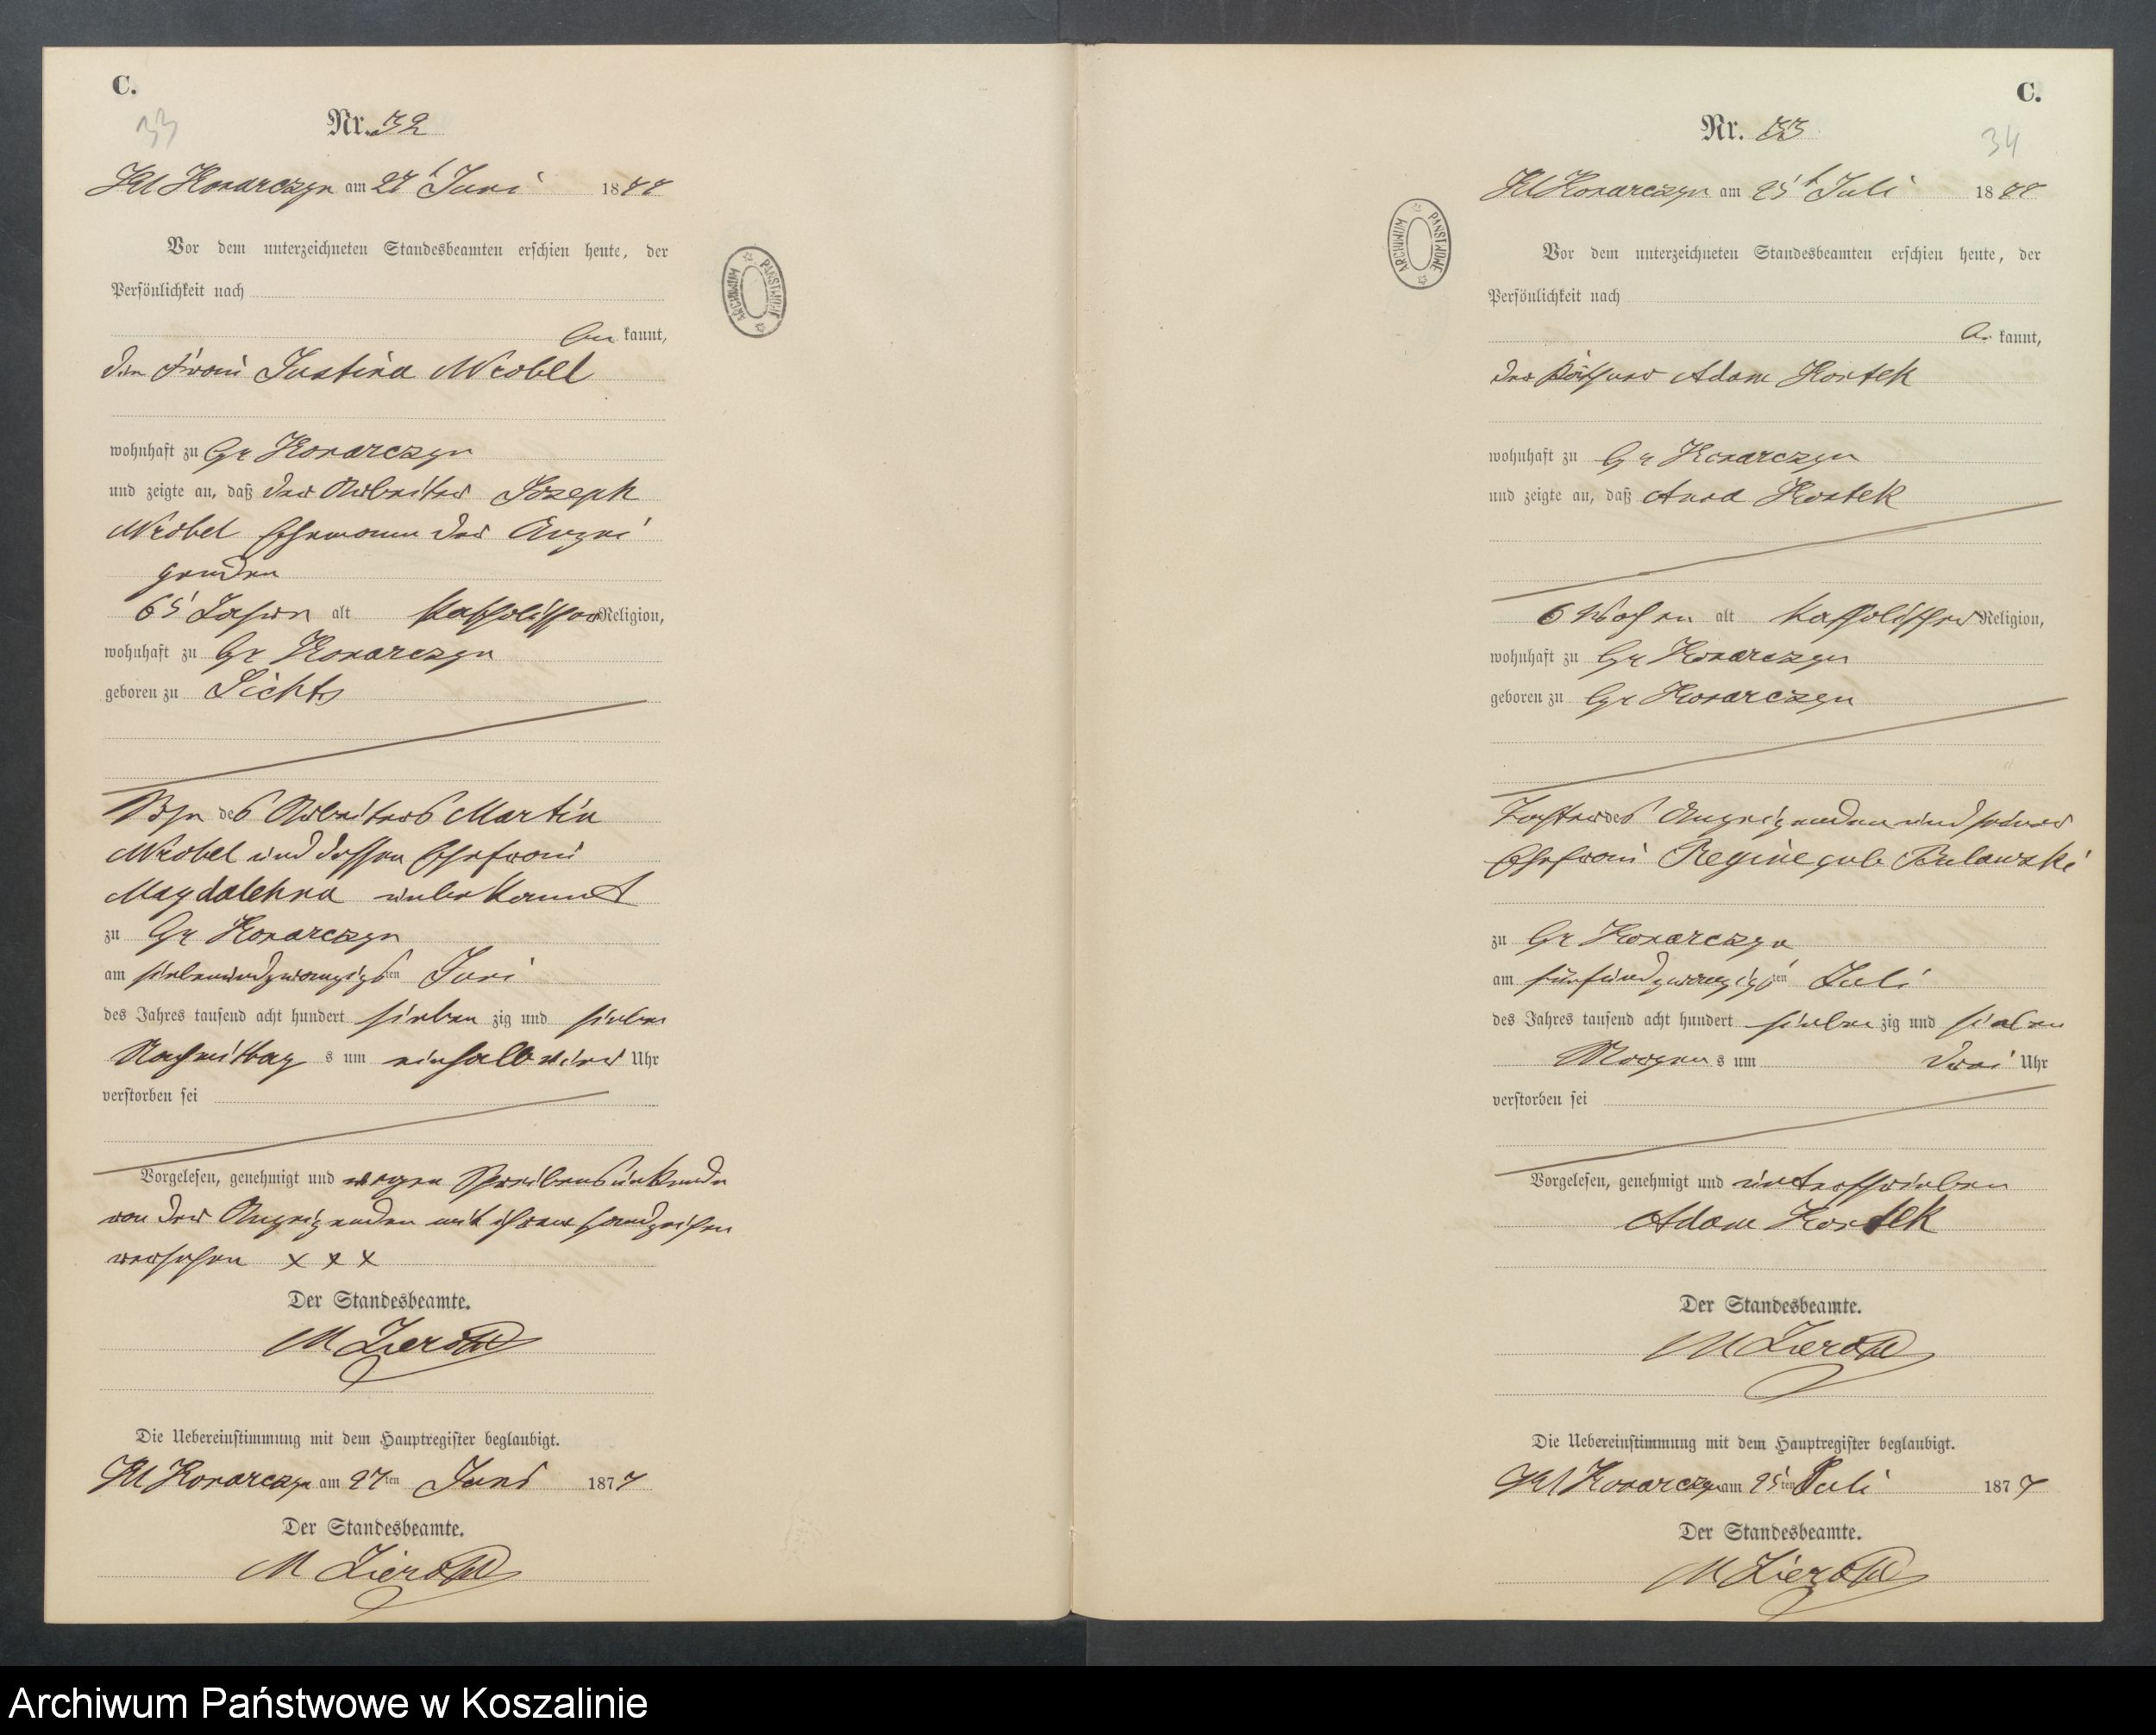 C.
33
Nr. 32
Kl Konarczyn am 27t Juni 1877
Vor dem unterzeichneten Standesbeamten erschien heute, der
Persönlichkeit nach
be kannt,
die Frau Justina Wrobel
wohnhaft zu Gr Konarczyn
und zeigte an, daß der Arbeiter Joseph
Wrobel Ehemann der Anzei
genden
65 Jahre alt katholischer Religion,
wohnhaft zu Gr Konarczyn
geboren zu
Sohn des Arbeiters Martin
Wrobel und dessen Ehefrau
Magdalehna unbekannt
zu Gr Konarczyn
am siebenundzwanzigsten Juni
des Jahres tausend acht hundert sieben zig und sieben
Nachmittag s um einhalb vier Uhr
verstorben sei
Vorgelesen, genehmigt und wegen Schreibensunkunde
von der Anzeigenden mit ihrem Handzeichen
versehen x x x
Der Standesbeamte.
M
Die Uebereinstimmung mit dem Hauptregister beglaubigt.
Kl Konarczyn am 27ten Juni 1877
Der Standesbeamte.
M
ARCHIWUM PAŃSTWOWE
C.
34
Nr. 33
Kl Konarczyn am 25t Juli 1877
Vor dem unterzeichneten Standesbeamten erschien heute, der
Persönlichkeit nach
be kannt,
der Adam Kostek
wohnhaft zu Gr Konarczyn
und zeigte an, daß Anna Kostek
6 Wochen alt katholischer Religion,
wohnhaft zu Gr Konarczyn
geboren zu Gr Konarczyn
Tochter des Anzeigenden und seiner
Ehefrau Regine geb Bulawski
zu Gr Konarczyn
am fünfundzwanzigsten Juli
des Jahres tausend acht hundert sieben zig und sieben
Morgen s um drei Uhr
verstorben sei
Vorgelesen, genehmigt und unterschrieben
Adam Kostek
Der Standesbeamte.
M
Die Uebereinstimmung mit dem Hauptregister beglaubigt.
Kl Konarczyn am 25ten Juli 1877
Der Standesbeamte.
M
ARCHIWUM PAŃSTWOWE
Archiwum Państwowe w Koszalinie